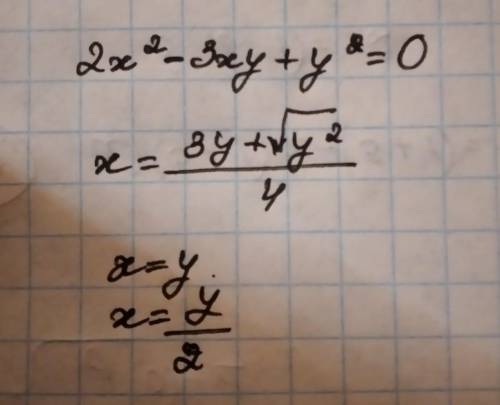 2x² - 3xy + y² = 0
x = (3y + √y²) / 4
x = y
x = y / 2